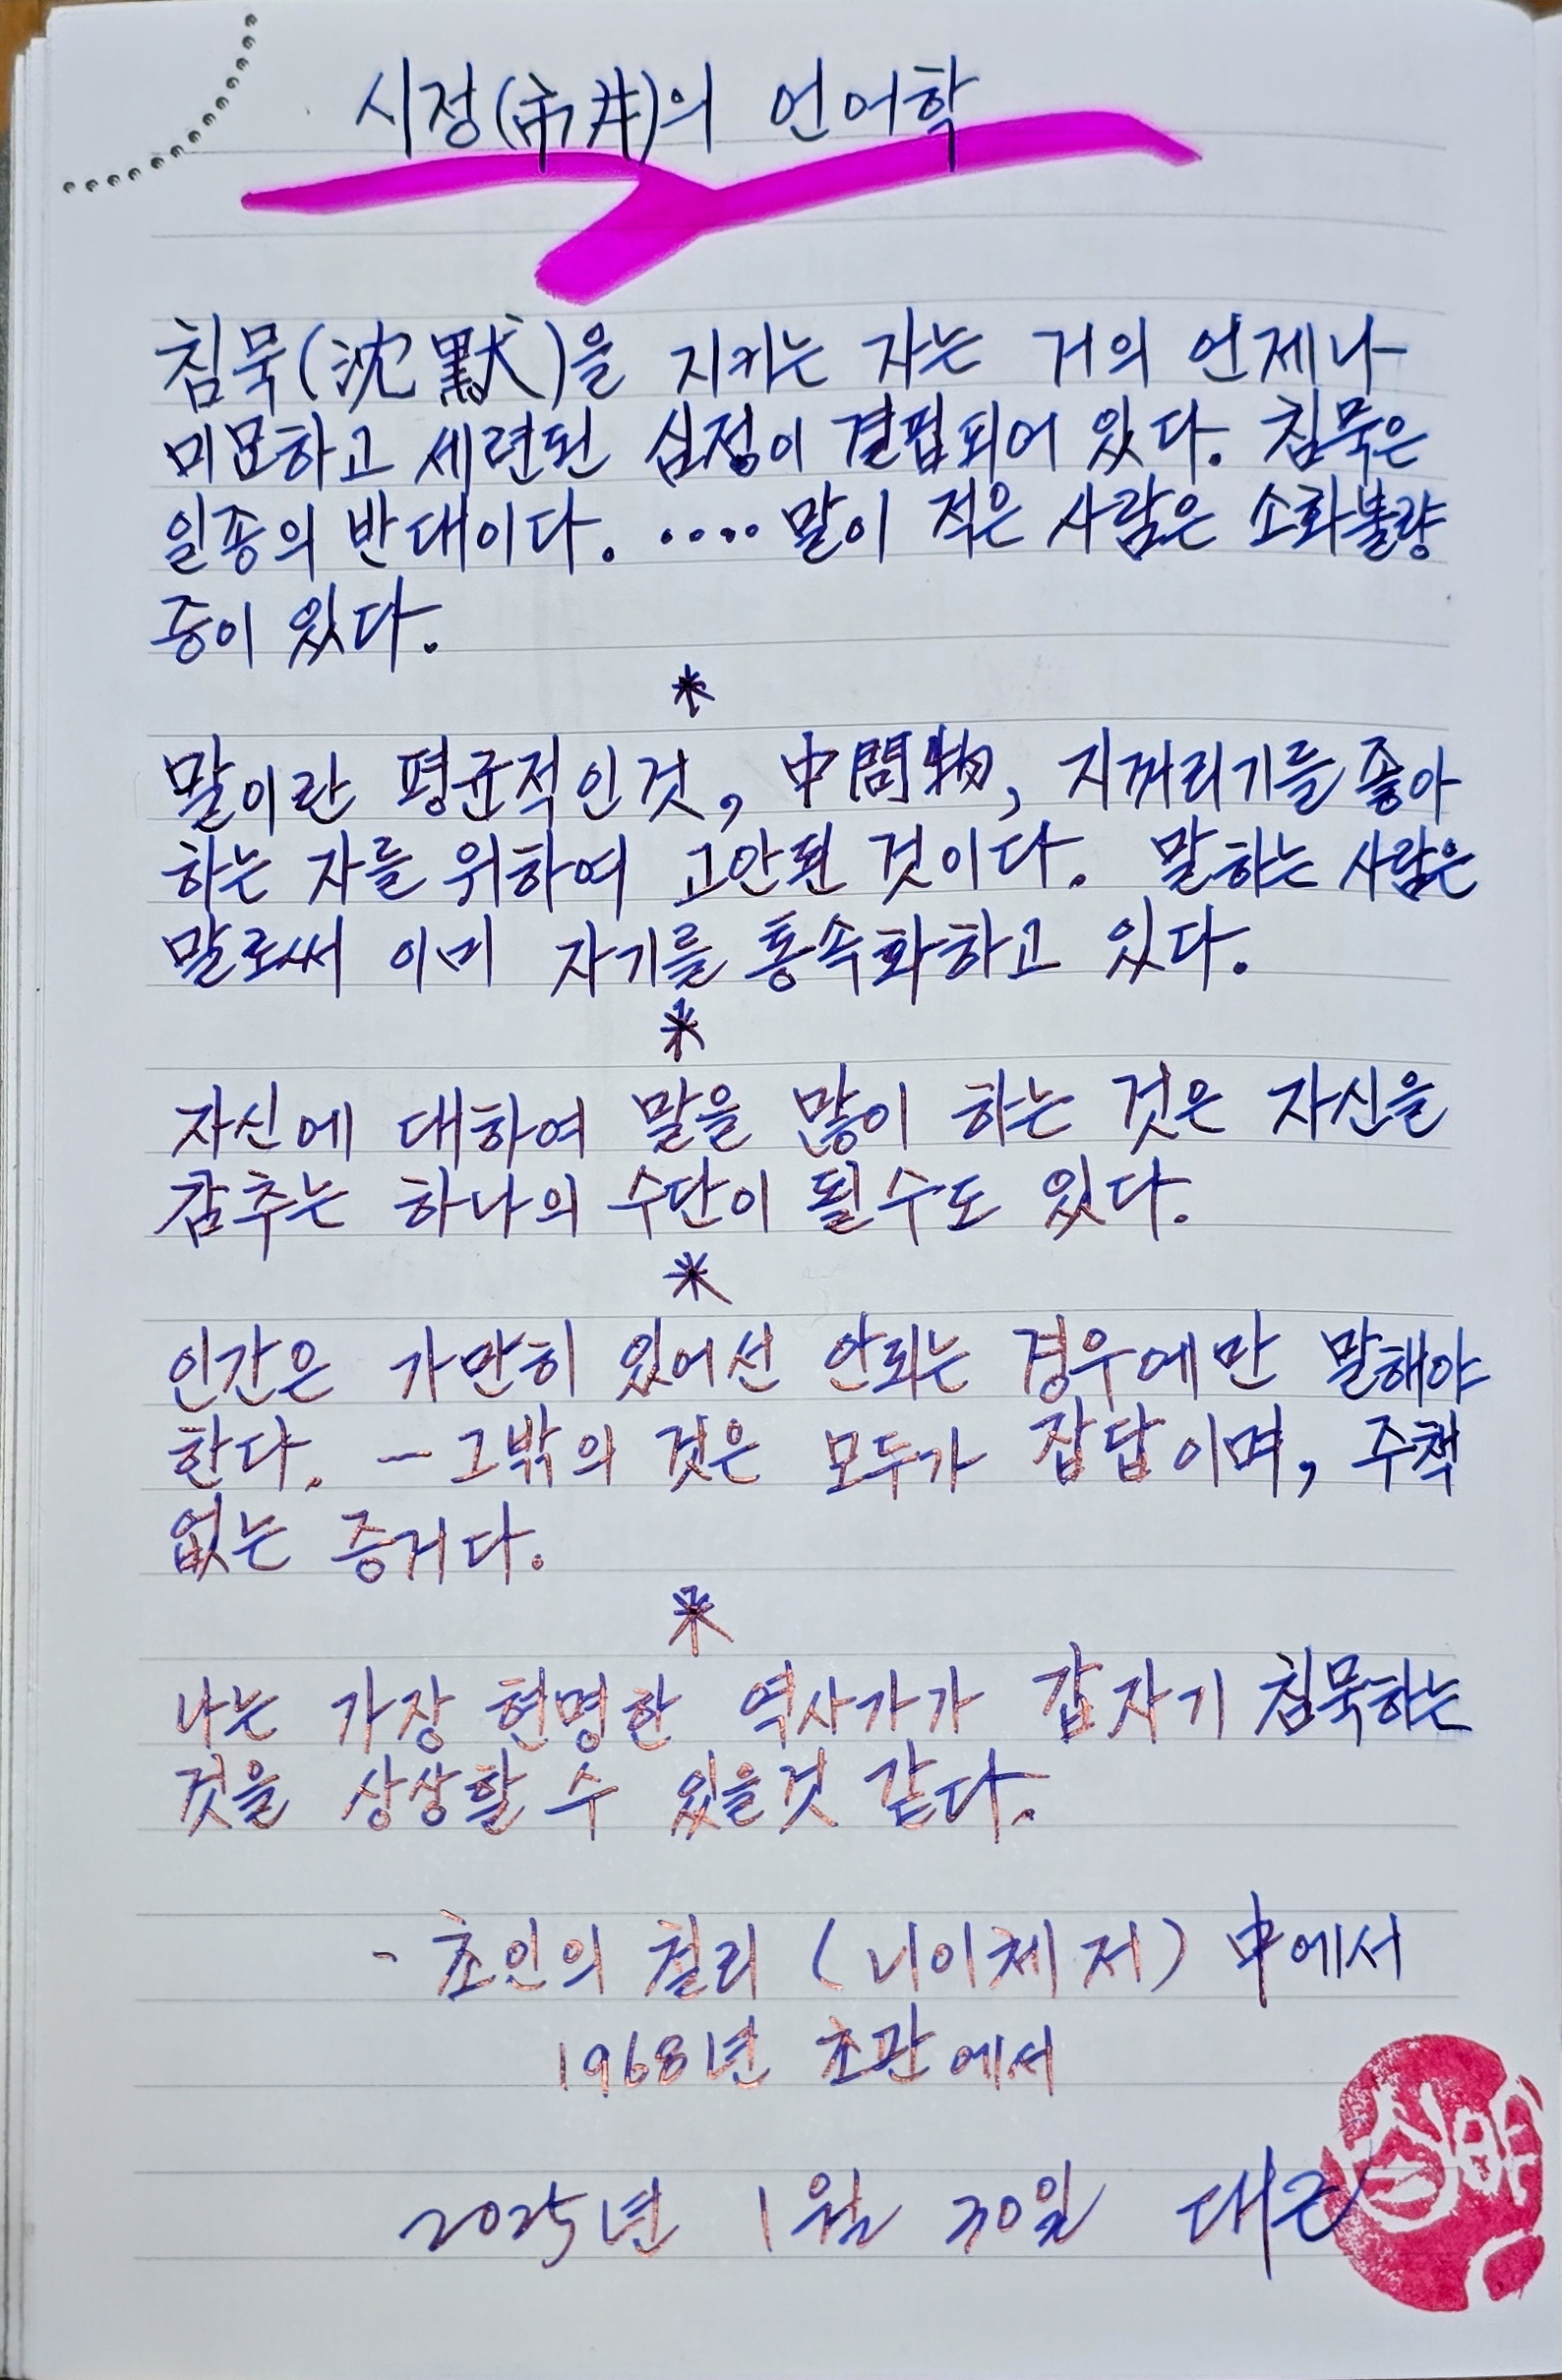 시정(市井)의 언어학
침묵(沈默)을 지키는 자는 거의 언제나
미묘하고 세련된 심정이 결핍되어 있다. 침묵은
일종의 반대이다. .... 말이 적은 사람은 소화불량
증이 있다.
*
말이란 평균적인것, 中間物, 지꺼리기를 좋아
하는 자를 위하여 고안된 것이다. 말하는 사람은
말로써 이미 자기를 통속화하고 있다.
*
자신에 대하여 말을 많이 하는 것은 자신을
감추는 하나의 수단이 될수도 있다.
*
인간은 가만히 있어선 안되는 경우에만 말해야
한다. - 그밖의 것은 모두가 잡답이며, 주책
없는 증거다.
*
나는 가장 현명한 역사가가 갑자기 침묵하는
것을 상상할 수 있을것 같다.
- 초인의 철리 (니이체 저) 中에서
1968년 초판에서
2025년 1월 30일 대근